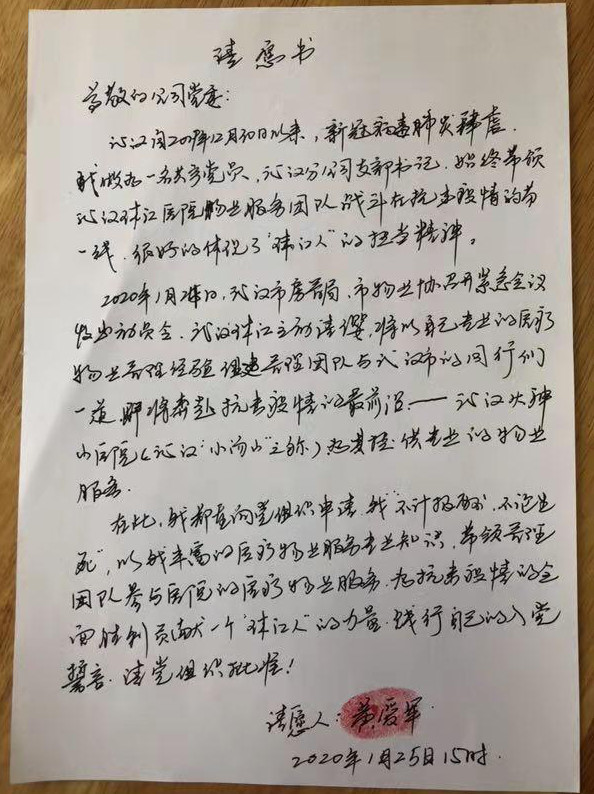 请愿书
尊敬的公司党委：
武汉自2019年12月30日以来，新冠病毒肺炎肆虐.
我做为一名共产党员、武汉分公司支部书记.始终带领
武汉珠江医院物业服务团队战斗在抗击疫情的第
一线.很好的体现了“珠江人”的担当精神。
2020年1月24日，武汉市房管局、市物业协召开紧急会议
发出动员令.武汉珠江主动请缨，将以自己专业的医疗
物业管理经验组建管理团队与武汉市的同行们
一道即将奔赴抗击疫情的最前沿——武汉火神
山医院（武汉“小汤山”之称），为其提供专业的物业
服务.
在此，我郑重向党组织申请.我“不计报酬、不论生
死”，以我丰富的医疗物业服务专业知识，带领管理
团队参与医院的医疗物业服务.为抗击疫情的全
面胜利贡献一个“珠江人”的力量.践行自己的入党
誓言.请党组织批准！
请愿人：黄爱军
2020年1月25日15时.